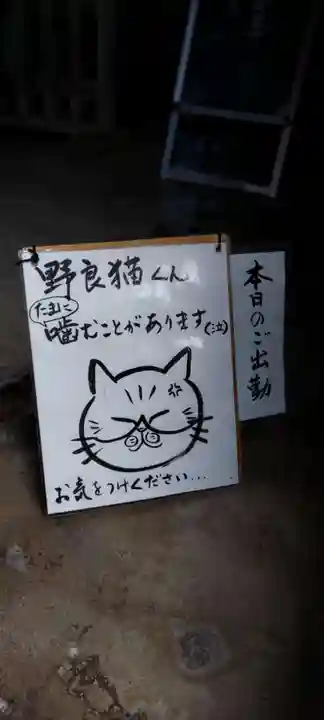 野良猫くん
たまに
噛むことがあります(泣)
お気をつけください...
本日のご出勤